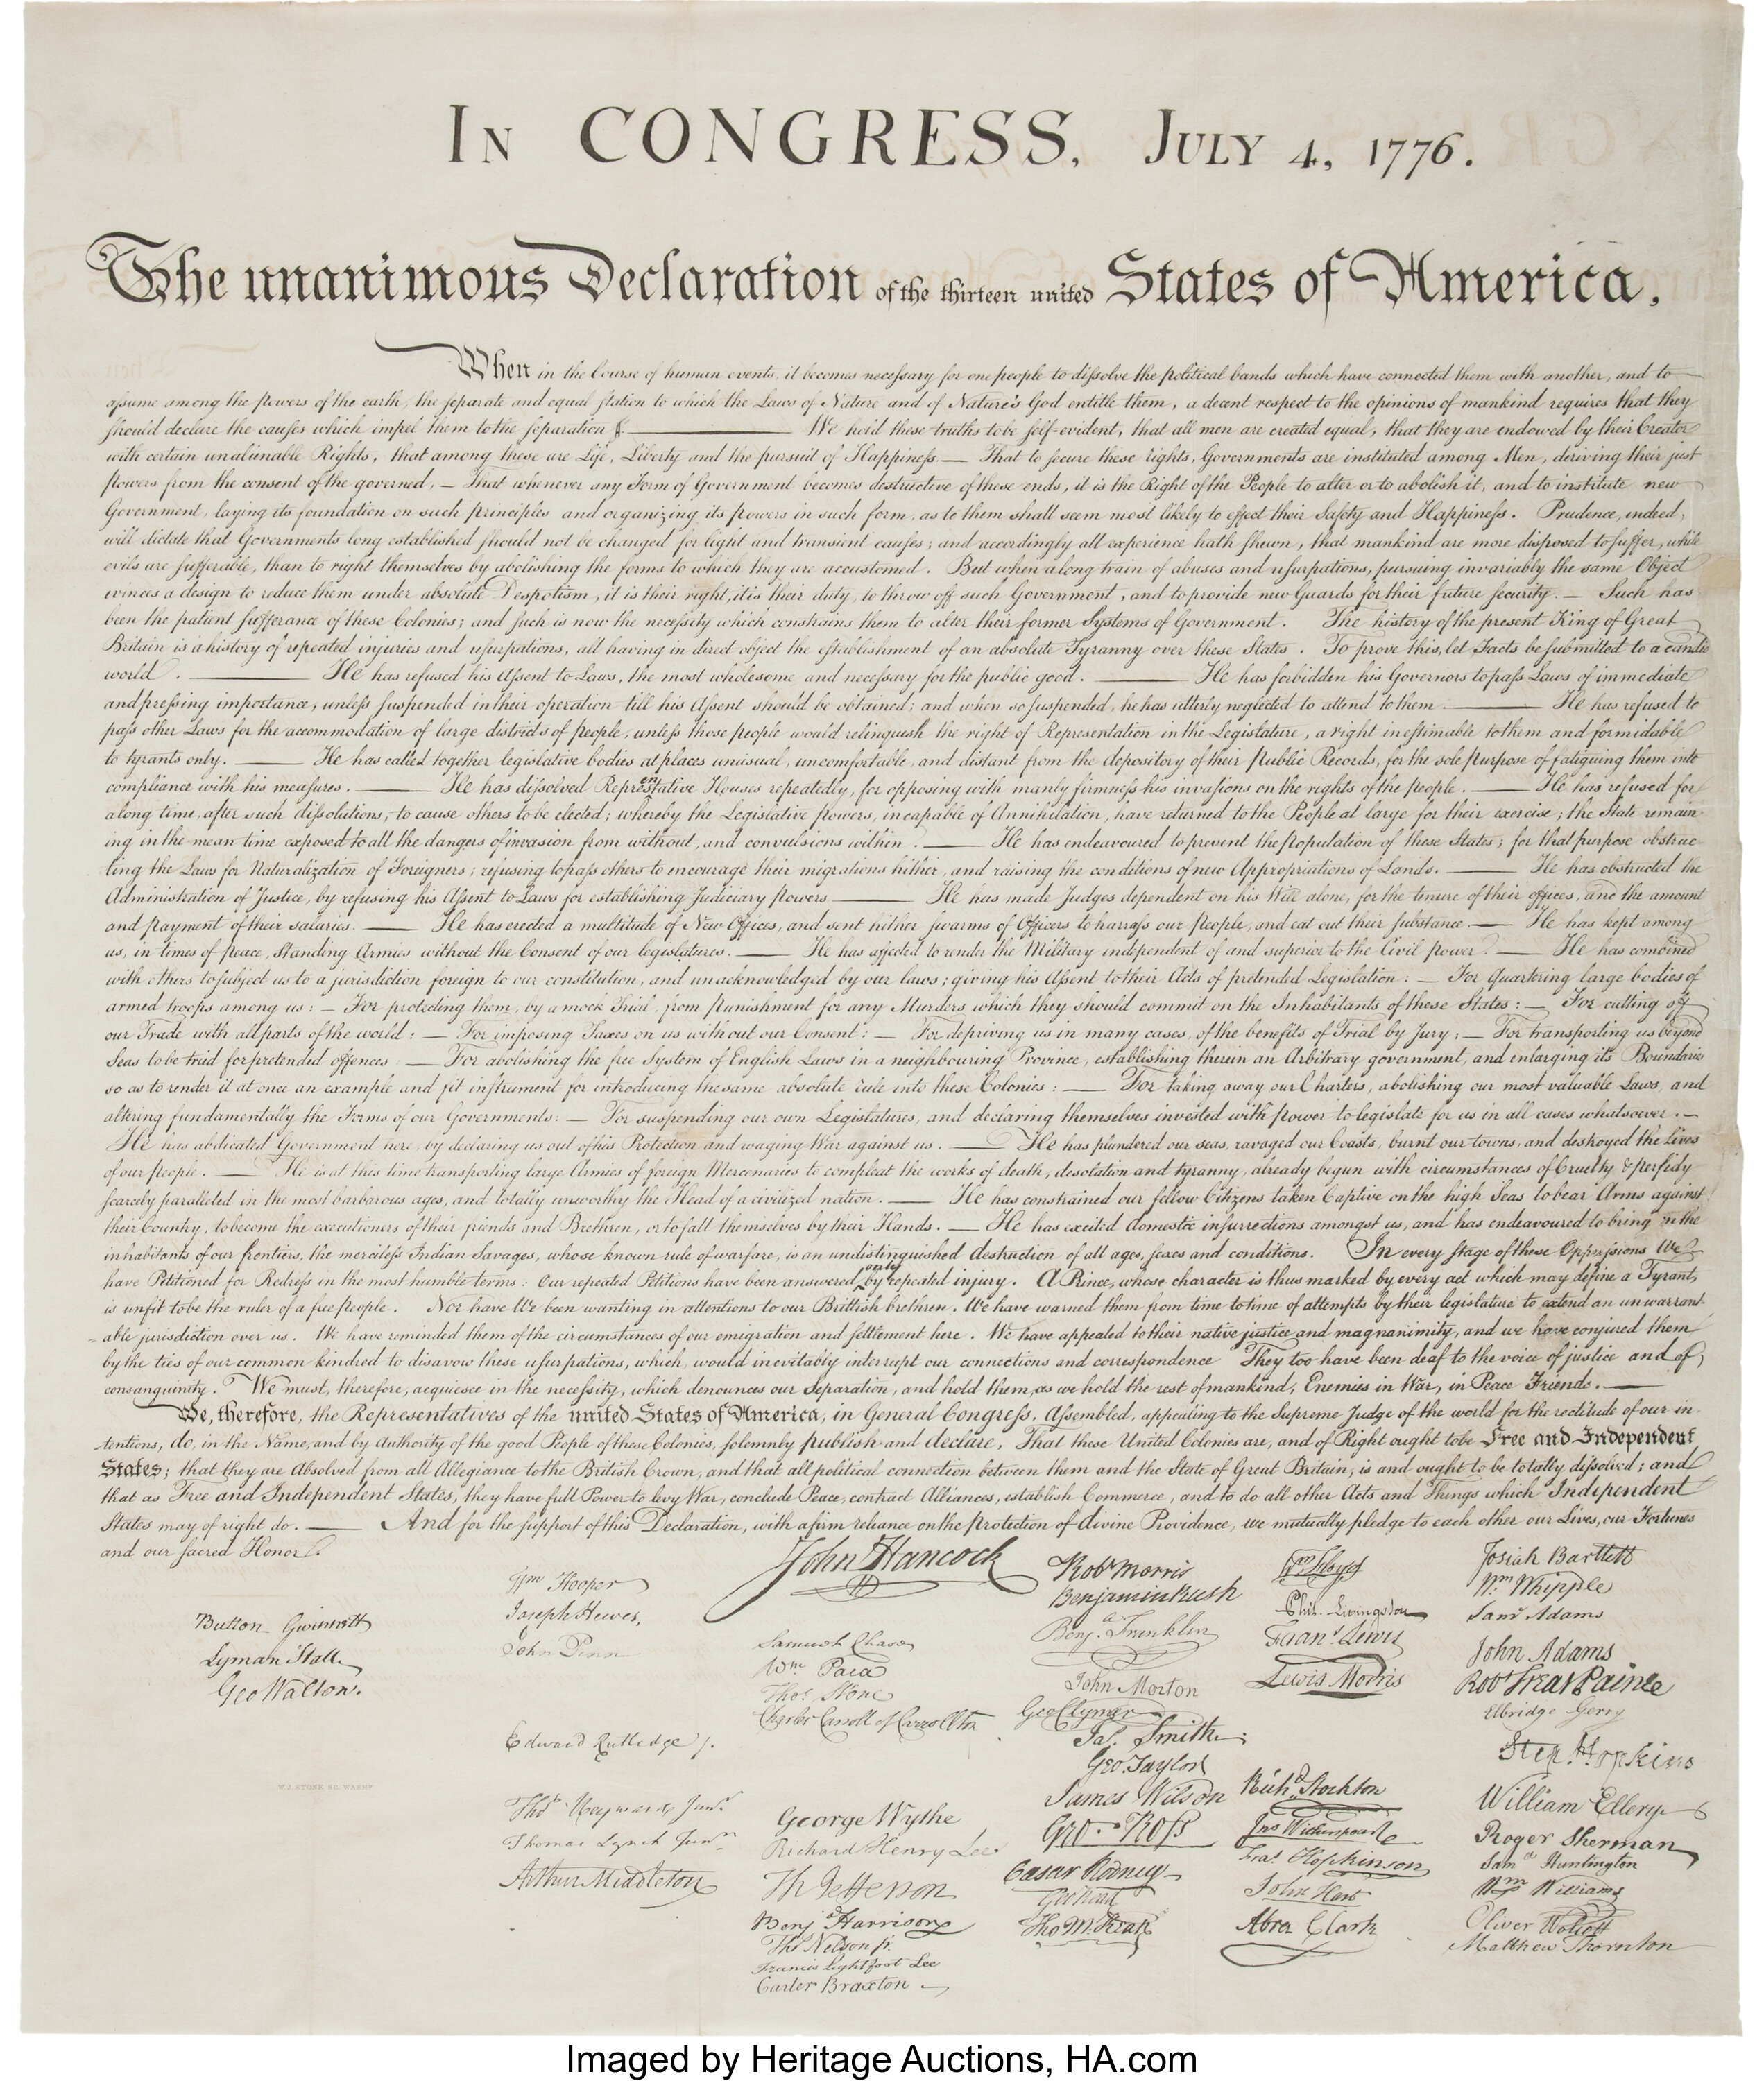 In CONGRESS, July 4, 1776.
The unanimous Declaration of the thirteen united States of America,
When in the Course of human events, it becomes necessary for one people to dissolve the political bands which have connected them with another, and to
assume among the powers of the earth, the separate and equal station to which the Laws of Nature and of Nature's God entitle them, a decent respect to the opinions of mankind requires that they
should declare the causes which impel them to the separation. — We hold these truths to be self-evident, that all men are created equal, that they are endowed by their Creator
with certain unalienable Rights, that among these are Life, Liberty and the pursuit of Happiness. — That to secure these rights, Governments are instituted among Men, deriving their just
powers from the consent of the governed, — That whenever any Form of Government becomes destructive of these ends, it is the Right of the People to alter or to abolish it, and to institute new
Government, laying its foundation on such principles and organizing its powers in such form, as to them shall seem most likely to effect their Safety and Happiness. Prudence, indeed,
will dictate that Governments long established should not be changed for light and transient causes; and accordingly all experience hath shewn, that mankind are more disposed to suffer, while
evils are sufferable, than to right themselves by abolishing the forms to which they are accustomed. But when a long train of abuses and usurpations, pursuing invariably the same Object
evinces a design to reduce them under absolute Despotism, it is their right, it is their duty, to throw off such Government, and to provide new Guards for their future security. — Such has
been the patient sufferance of these Colonies; and such is now the necessity which constrains them to alter their former Systems of Government. The history of the present King of Great
Britain is a history of repeated injuries and usurpations, all having in direct object the establishment of an absolute Tyranny over these States. To prove this, let Facts be submitted to a candid
world. — He has refused his Assent to Laws, the most wholesome and necessary for the public good. — He has forbidden his Governors to pass Laws of immediate
and pressing importance, unless suspended in their operation till his Assent should be obtained; and when so suspended, he has utterly neglected to attend to them. — He has refused to
pass other Laws for the accommodation of large districts of people, unless those people would relinquish the right of Representation in the Legislature, a right inestimable to them and formidable
to tyrants only. — He has called together legislative bodies at places unusual, uncomfortable, and distant from the depository of their Public Records, for the sole purpose of fatiguing them into
compliance with his measures. — He has dissolved Representative Houses repeatedly, for opposing with manly firmness his invasions on the rights of the people. — He has refused for
a long time, after such dissolutions, to cause others to be elected; whereby the Legislative powers, incapable of Annihilation, have returned to the People at large for their exercise; the State remain
ing in the mean time exposed to all the dangers of invasion from without, and convulsions within. — He has endeavoured to prevent the population of these States; for that purpose obstruc-
ting the Laws for Naturalization of Foreigners; refusing to pass others to encourage their migrations hither, and raising the conditions of new Appropriations of Lands. — He has obstructed the
Administration of Justice, by refusing his Assent to Laws for establishing Judiciary powers. — He has made Judges dependent on his Will alone, for the tenure of their offices, and the amount
and payment of their salaries. — He has erected a multitude of New Offices, and sent hither swarms of Officers to harrass our People, and eat out their substance. — He has kept among
us, in times of peace, Standing Armies without the Consent of our legislatures. — He has affected to render the Military independent of and superior to the Civil power. — He has combined
with others to subject us to a jurisdiction foreign to our constitution, and unacknowledged by our laws; giving his Assent to their Acts of pretended Legislation: — For Quartering large bodies of
armed troops among us: — For protecting them, by a mock Trial, from punishment for any Murders which they should commit on the Inhabitants of these States: — For cutting off
our Trade with all parts of the world: — For imposing Taxes on us without our Consent: — For depriving us in many cases, of the benefits of Trial by Jury; — For transporting us beyond
Seas to be tried for pretended offences — For abolishing the free System of English Laws in a neighbouring Province, establishing therein an Arbitrary government, and enlarging its Boundaries
so as to render it at once an example and fit instrument for introducing the same absolute rule into these Colonies: — For taking away our Charters, abolishing our most valuable Laws, and
altering fundamentally the Forms of our Governments: — For suspending our own Legislatures, and declaring themselves invested with power to legislate for us in all cases whatsoever. —
He has abdicated Government here, by declaring us out of his Protection and waging War against us. — He has plundered our seas, ravaged our Coasts, burnt our towns, and destroyed the lives
of our people. — He is at this time transporting large Armies of foreign Mercenaries to compleat the works of death, desolation and tyranny, already begun with circumstances of Cruelty & perfidy
scarcely paralleled in the most barbarous ages, and totally unworthy the Head of a civilized nation. — He has constrained our fellow Citizens taken Captive on the high Seas to bear Arms against
their Country, to become the executioners of their friends and Brethren, or to fall themselves by their Hands. — He has excited domestic insurrections amongst us, and has endeavoured to bring on the
inhabitants of our frontiers, the merciless Indian Savages, whose known rule of warfare, is an undistinguished destruction of all ages, sexes and conditions. In every stage of these Oppressions We
have Petitioned for Redress in the most humble terms: Our repeated Petitions have been answered only by repeated injury. A Prince, whose character is thus marked by every act which may define a Tyrant,
is unfit to be the ruler of a free people. Nor have We been wanting in attentions to our Brittish brethren. We have warned them from time to time of attempts by their legislature to extend an unwarrant-
able jurisdiction over us. We have reminded them of the circumstances of our emigration and settlement here. We have appealed to their native justice and magnanimity, and we have conjured them
by the ties of our common kindred to disavow these usurpations, which, would inevitably interrupt our connections and correspondence They too have been deaf to the voice of justice and of
consanguinity. We must, therefore, acquiesce in the necessity, which denounces our Separation, and hold them, as we hold the rest of mankind, Enemies in War, in Peace Friends. —
We, therefore, the Representatives of the united States of America, in General Congress, Assembled, appealing to the Supreme Judge of the world for the rectitude of our in-
tentions, do, in the Name, and by Authority of the good People of these Colonies, solemnly publish and declare, That these United Colonies are, and of Right ought to be Free and Independent
States; that they are Absolved from all Allegiance to the British Crown, and that all political connection between them and the State of Great Britain, is and ought to be totally dissolved; and
that as Free and Independent States, they have full Power to levy War, conclude Peace, contract Alliances, establish Commerce, and to do all other Acts and Things which Independent
States may of right do. — And for the support of this Declaration, with a firm reliance on the protection of divine Providence, we mutually pledge to each other our Lives, our Fortunes
and our sacred Honor.
Button Gwinnett
Lyman Hall
Geo Walton.
W.J. STONE SC. WASHN
Wm Hooper
Joseph Hewes,
John Penn
Edward Rutledge
Thos Heyward Junr.
Thomas Lynch Junr.
Arthur Middleton
John Hancock
Samuel Chase
Wm Paca
Thos Stone
Charles Carroll of Carrollton
George Wythe
Richard Henry Lee
Th Jefferson
Benj Harrison
Thos Nelson jr.
Francis Lightfoot Lee
Carter Braxton
Robt Morris
Benjamin Rush
Benja. Franklin
John Morton
Geo Clymer
Jas. Smith
Geo. Taylor
James Wilson
Geo. Ross
Caesar Rodney
Geo Read
Tho M:Kean
Wm Floyd
Phil. Livingston
Frans. Lewis
Lewis Morris
Richd. Stockton
Jno Witherspoon
Fras. Hopkinson
John Hart
Abra Clark
Josiah Bartlett
Wm Whipple
Saml Adams
John Adams
Robt Treat Paine
Elbridge Gerry
Step. Hopkins
William Ellery
Roger Sherman
Saml Huntington
Wm Williams
Oliver Wolcott
Matthew Thornton
Imaged by Heritage Auctions, HA.com